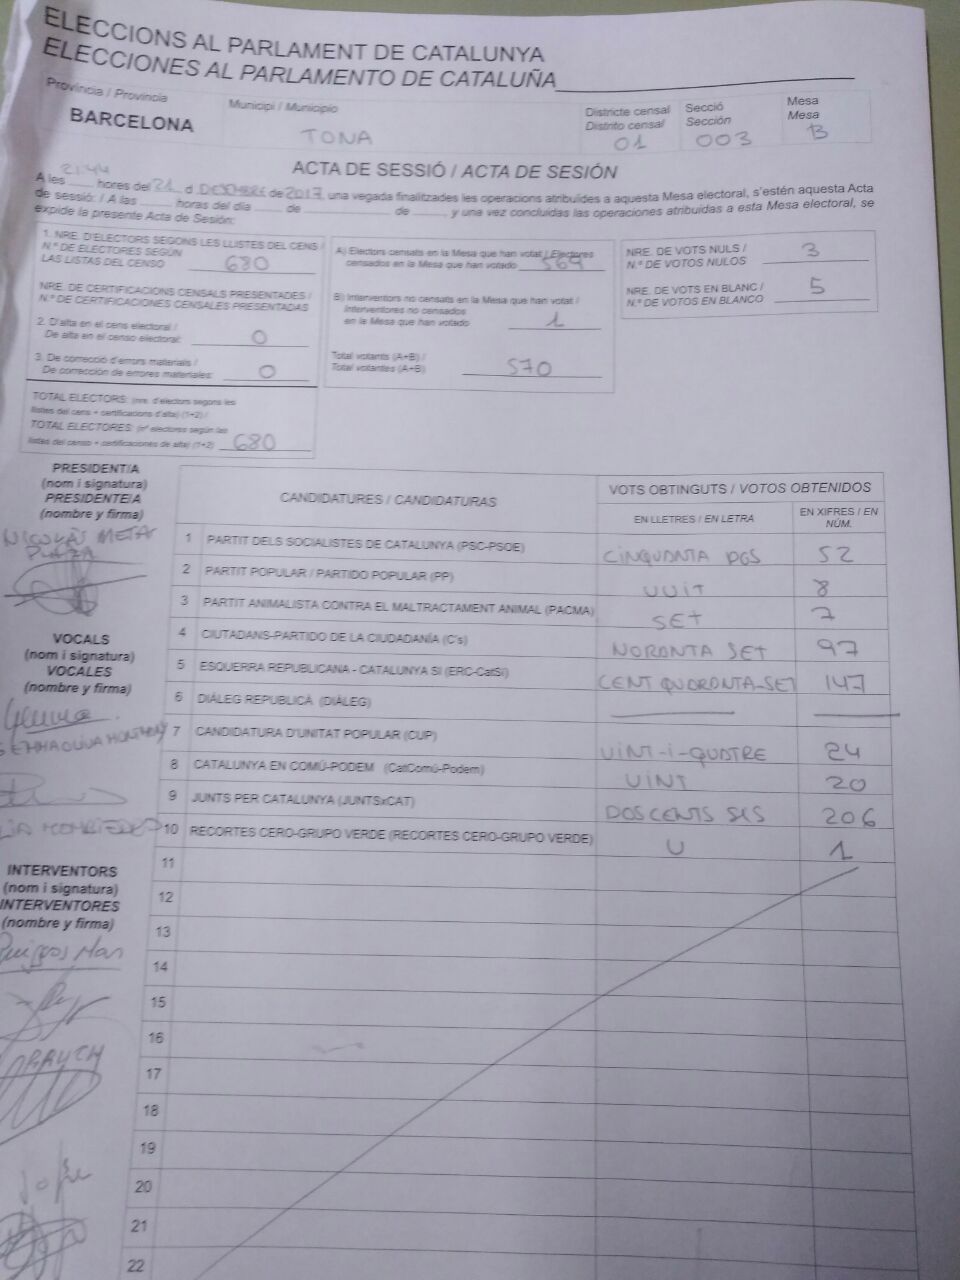 ELECCIONS AL PARLAMENT DE CATALUNYA
ELECCIONES AL PARLAMENTO DE CATALUÑA
Província / Provincia
BARCELONA
Municipi / Municipio
TONA
Districte censal
Distrito censal
01
Secció
Sección
003
Mesa
Mesa
B
ACTA DE SESSIÓ / ACTA DE SESIÓN
21:44
A les hores del 21 d DESEMBRE de 2017, una vegada finalitzades les operacions atribuïdes a aquesta Mesa electoral, s'estén aquesta Acta
de sessió: / A las horas del día de de , y una vez concluidas las operaciones atribuidas a esta Mesa electoral, se
expide la presente Acta de Sesión:
1. NRE. D'ELECTORS SEGONS LES LLISTES DEL CENS /
N.º DE ELECTORES SEGÚN
LAS LISTAS DEL CENSO 680
NRE. DE CERTIFICACIONS CENSALS PRESENTADES /
N.º DE CERTIFICACIONES CENSALES PRESENTADAS
2. D'alta en el cens electoral /
De alta en el censo electoral: 0
3. De correcció d'errors materials /
De corrección de errores materiales: 0
TOTAL ELECTORS: (nre. d'electors segons les
llistes del cens + certificacions d'alta) (1+2) /
TOTAL ELECTORES: (nº electores según las
listas del censo + certificaciones de alta) (1+2) 680
A) Electors censats en la Mesa que han votat / Electores
censados en la Mesa que han votado 569
B) Interventors no censats en la Mesa que han votat /
Interventores no censados
en la Mesa que han votado 1
Total votants (A+B) /
Total votantes (A+B) 570
NRE. DE VOTS NULS /
N.º DE VOTOS NULOS 3
NRE. DE VOTS EN BLANC /
N.º DE VOTOS EN BLANCO 5
PRESIDENT/A
(nom i signatura)
PRESIDENTE/A
(nombre y firma)
NICOLÁS
PLAZA
VOCALS
(nom i signatura)
VOCALES
(nombre y firma)
INTERVENTORS
(nom i signatura)
INTERVENTORES
(nombre y firma)
CANDIDATURES / CANDIDATURAS
VOTS OBTINGUTS / VOTOS OBTENIDOS
EN LLETRES / EN LETRA
EN XIFRES / EN
NÚM.
1 PARTIT DELS SOCIALISTES DE CATALUNYA (PSC-PSOE) CINQUANTA DOS 52
2 PARTIT POPULAR / PARTIDO POPULAR (PP) VUIT 8
3 PARTIT ANIMALISTA CONTRA EL MALTRACTAMENT ANIMAL (PACMA) SET 7
4 CIUTADANS-PARTIDO DE LA CIUDADANÍA (C's) NORANTA SET 97
5 ESQUERRA REPUBLICANA - CATALUNYA SI (ERC-CatSí) CENT QUARANTA-SET 147
6 DIÀLEG REPUBLICÀ (DIÀLEG)
7 CANDIDATURA D'UNITAT POPULAR (CUP) VINT-I-QUATRE 24
8 CATALUNYA EN COMÚ-PODEM (CatComú-Podem) VINT 20
9 JUNTS PER CATALUNYA (JUNTSxCAT) DOS CENTS SIS 206
10 RECORTES CERO-GRUPO VERDE (RECORTES CERO-GRUPO VERDE) U 1
11
12
13
14
15
16
17
18
19
20
21
22